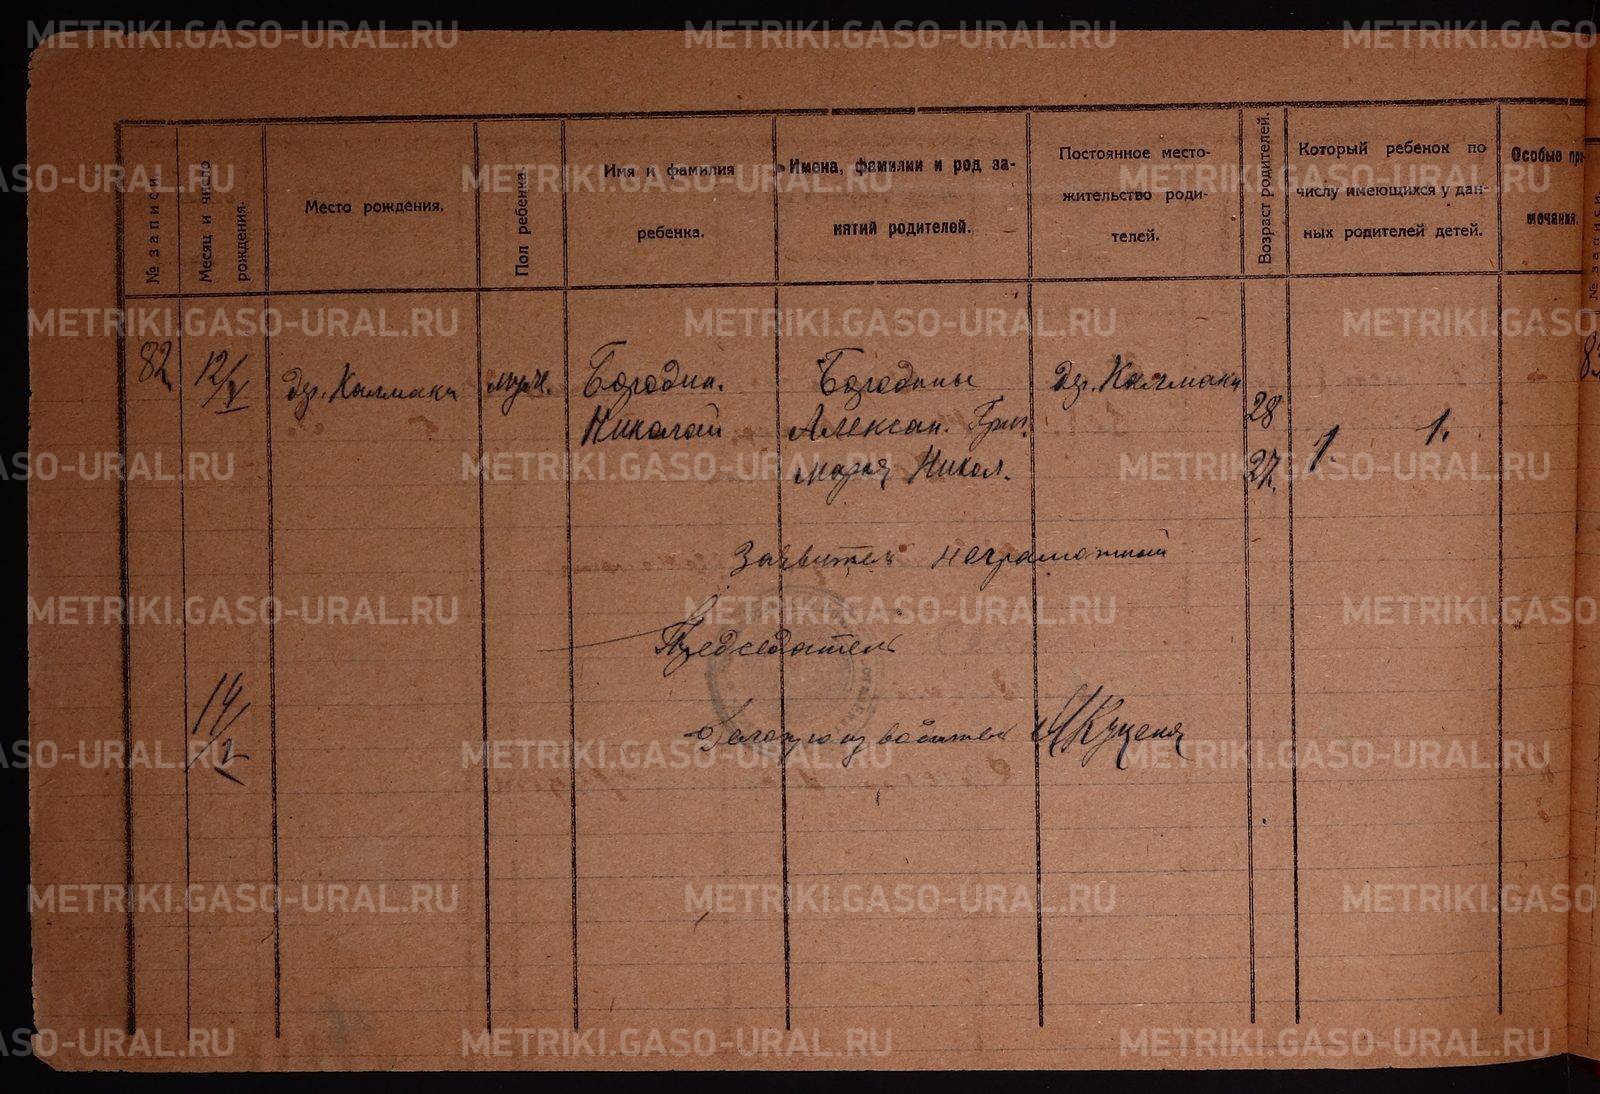 METRIKI.GASO-URAL.RU
№ записи.
Месяц и число рождения.
Место рождения.
Пол ребенка.
Имя и фамилия
ребенка.
Имена, фамилии и род за-
нятий родителей.
Постоянное место-
жительство роди-
телей.
Возраст родителей.
Который ребенок по
числу имеющихся у дан-
ных родителей детей.
Особые при-
мечания.
№ записи
82 12/V дер. Калмаки муж. Бородин. Бородины дер. Калмаки
Николай Александ. Григ. 28
Мария Никол. 27. 1. 1.
Заявитель неграмотный
Председатель
14/V
Делопроизводитель